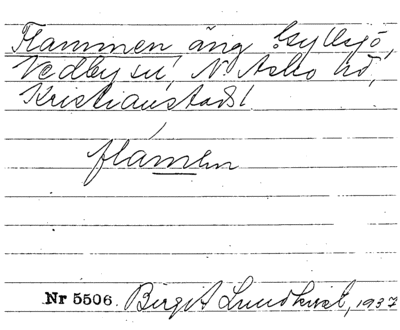 Flammen äng Gyllsjö,
Vedby sn, N. Åsbo hd,
Kristianstads l
flámen
Nr 5506. Birgit Lundkvist, 1937